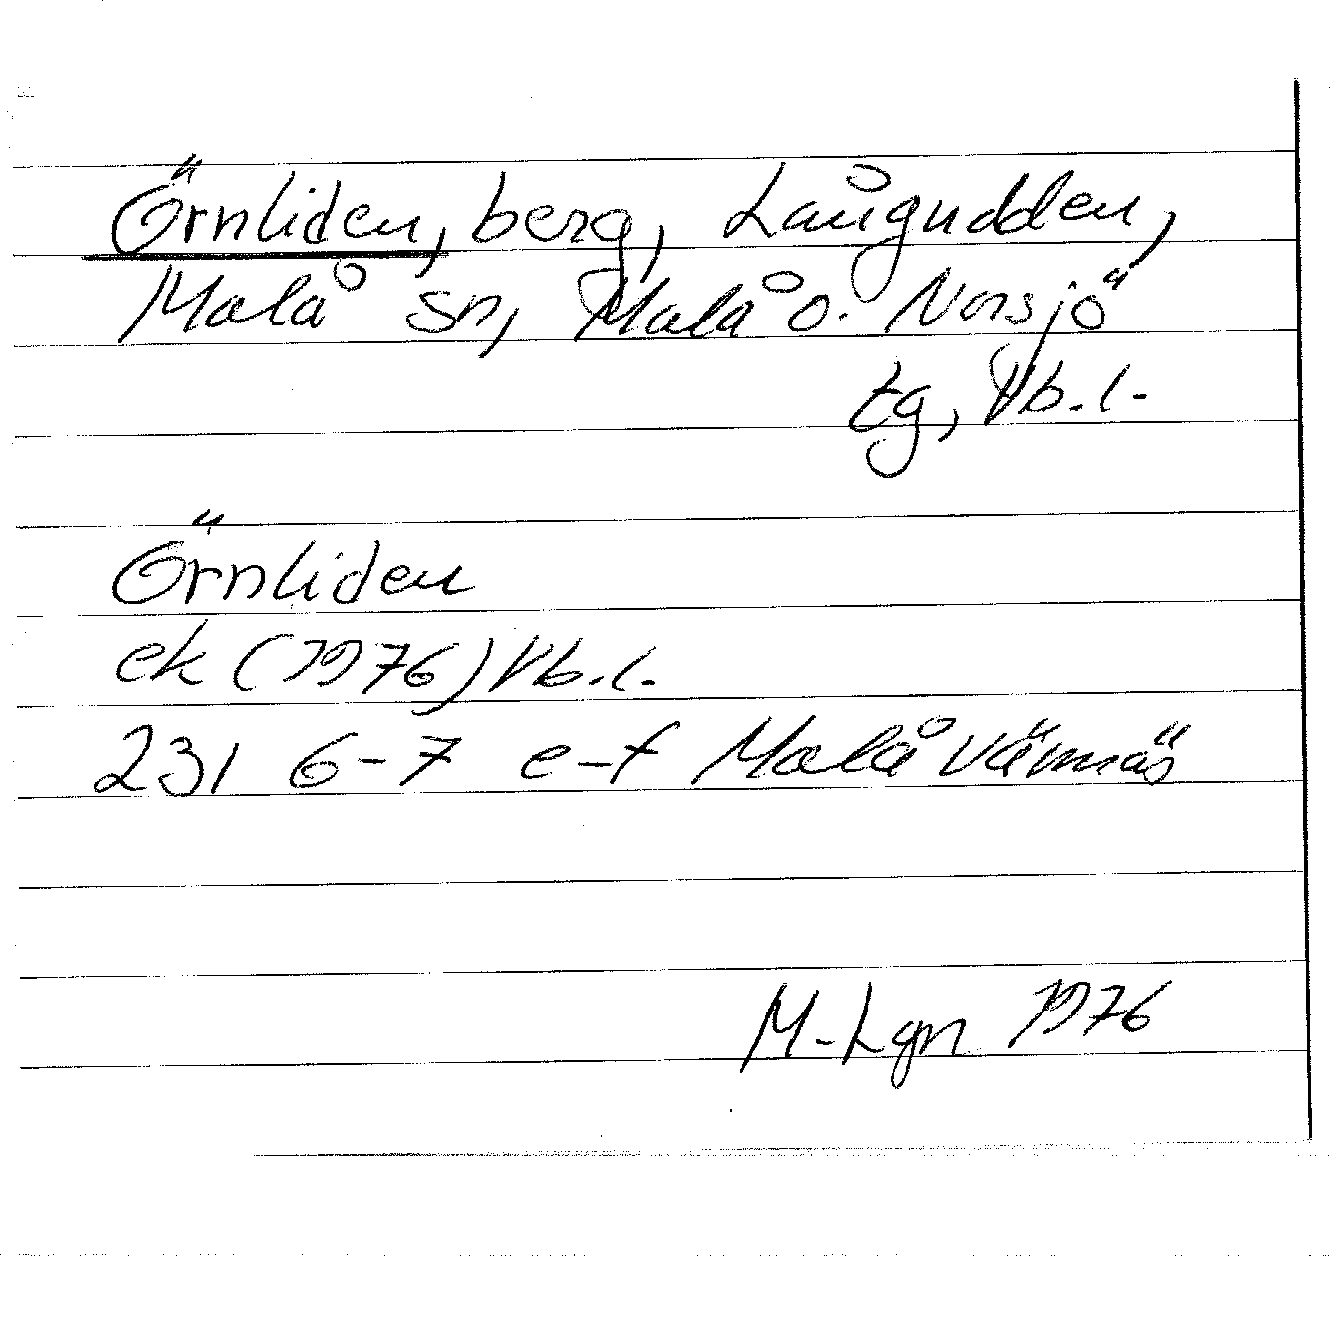 Örnliden, berg, Långudden,
Malå sn, Malå o. Norsjö
tg, Vb.l.
Örnliden
ek (1976) Vb.l.
231 6-7 e-f Malå Vännäs
M-Lgn 1976